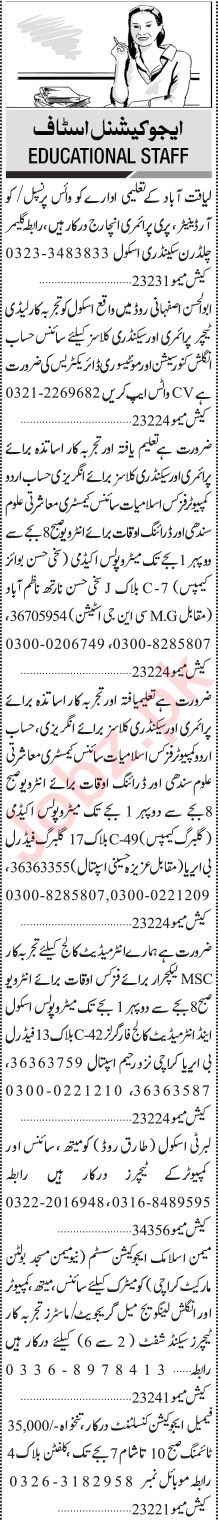 ایجوکیشنل اسٹاف
EDUCATIONAL STAFF
لیاقت آباد کے تعلیمی ادارے کو وائس پرنسپل/ کو
آرڈینیٹر، پری پرائمری انچارج درکار ہیں، رابطہ گلیمر
چلڈرن سیکنڈری اسکول 0323-3483833
کیش میمو 23231
ابوالحسن اصفہانی روڈ میں واقع اسکول کو تجربہ کار لیڈی
ٹیچر پرائمری اور سیکنڈری کلاسز کیلئے سائنس حساب
انگلش کنورسیشن اور مونٹیسوری ڈائریکٹریس کی ضرورت
ہے CV واٹس ایپ کریں 0321-2269682
کیش میمو 23224
ضرورت ہے تعلیم یافتہ اور تجربہ کار اساتذہ برائے
پرائمری اور سیکنڈری کلاسز برائے انگریزی حساب اردو
کمپیوٹر فزکس اسلامیات سائنس کیمسٹری معاشرتی علوم
سندھی اور ڈرائنگ اوقات برائے انٹرویو صبح 8 بجے سے
دوپہر 1 بجے تک میٹروپولس اکیڈمی (سخی حسن بوائز
کیمپس) C-7 بلاک J سخی حسن نارتھ ناظم آباد
(مقابل M.G سی این جی اسٹیشن) 36705954،
0300-8285807، 0300-0206749
کیش میمو 23224
ضرورت ہے تعلیمیافتہ اور تجربہ کار اساتذہ برائے
پرائمری اور سیکنڈری کلاسز برائے انگریزی، حساب،
اردو کمپیوٹر فزکس اسلامیات سائنس کیمسٹری معاشرتی
علوم سندھی اور ڈرائنگ اوقات برائے انٹرویو صبح
8 بجے سے دوپہر 1 بجے تک میٹروپولس اکیڈمی
(گلبرگ کیمپس) C-49 بلاک 17 گلبرگ فیڈرل
بی ایریا (مقابل عزیزہ حسینی اسپتال) 36363355،
0300-8285807,0300-0221209
کیش میمو 23224
ضرورت ہے ہمارے انٹرمیڈیٹ کالج کیلئے تجربہ کار
MSC لیکچرار برائے فزکس اوقات برائے انٹرویو
صبح 8 بجے سے دوپہر 1 بجے تک میٹروپولس اسکول
اینڈ انٹرمیڈیٹ کالج فار گرلز C-42 بلاک 13 فیڈرل
بی ایریا کراچی نزد رحیم اسپتال 36363759،
36363587، 0300-0221210
کیش میمو 23224
لبرٹی اسکول (طارق روڈ) کو میتھ، سائنس اور
کمپیوٹر کے ٹیچرز درکار ہیں رابطہ
0316-8489595، 0322-2016948
کیش میمو 34356
میمن اسلامک ایجوکیشن سسٹم (نیو میمن مسجد بولٹن
مارکیٹ کراچی) کو میٹرک کیلئے سائنس، میتھ، کمپیوٹر
اور انگلش لینگویج میل گریجویٹ/ ماسٹرز تجربہ کار
ٹیچرز سیکنڈ شفٹ (2 سے 6) کیلئے درکار ہیں
رابطہ 0336-8978413
کیش میمو 23241
فیمیل ایجوکیشن کنسلٹنٹ درکار، تنخواہ -/35,000
ٹائمنگ صبح 10 تا شام 7 بجے تک، کلفٹن بلاک 4
رابطہ موبائل نمبر 0326-3182958
کیش میمو 23221
Jobz.pk